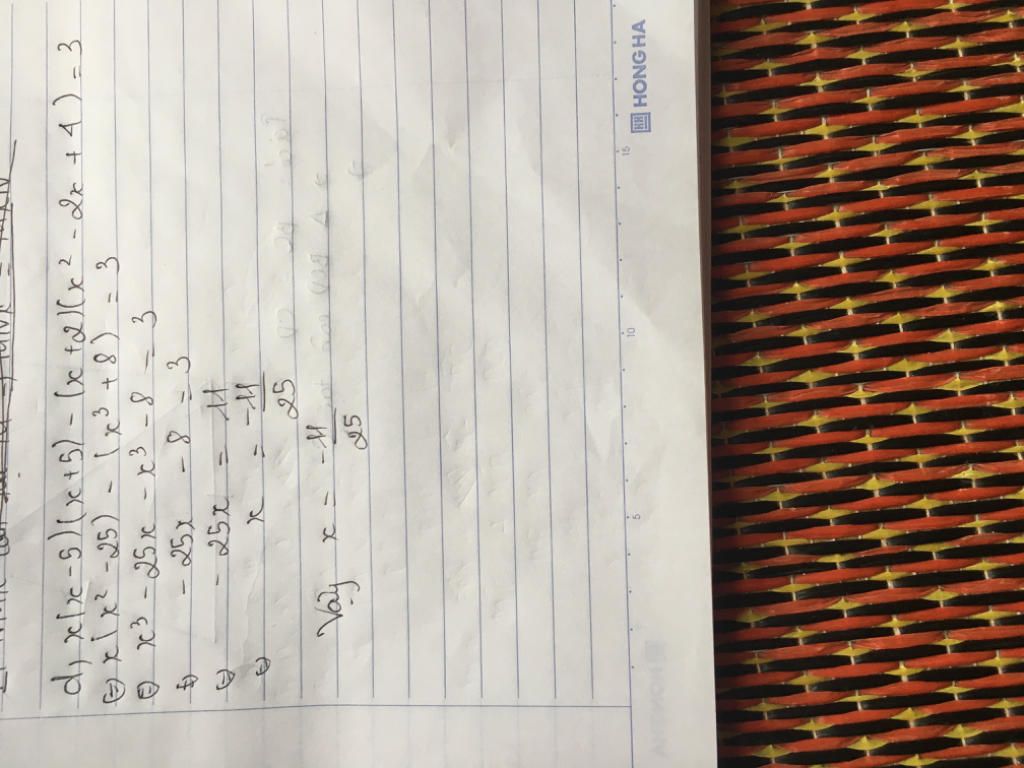 d, x(x-5)(x+5) - (x+2)(x² - 2x + 4) = 3
(=) x(x² - 25) - (x³ + 8) = 3
(=) x³ - 25x - x³ - 8 = 3
(=) - 25x - 8 = 3
(=) - 25x = 11
(=) x = -11/25
Vậy x = -11/25
5
10
15
HH HONG HA